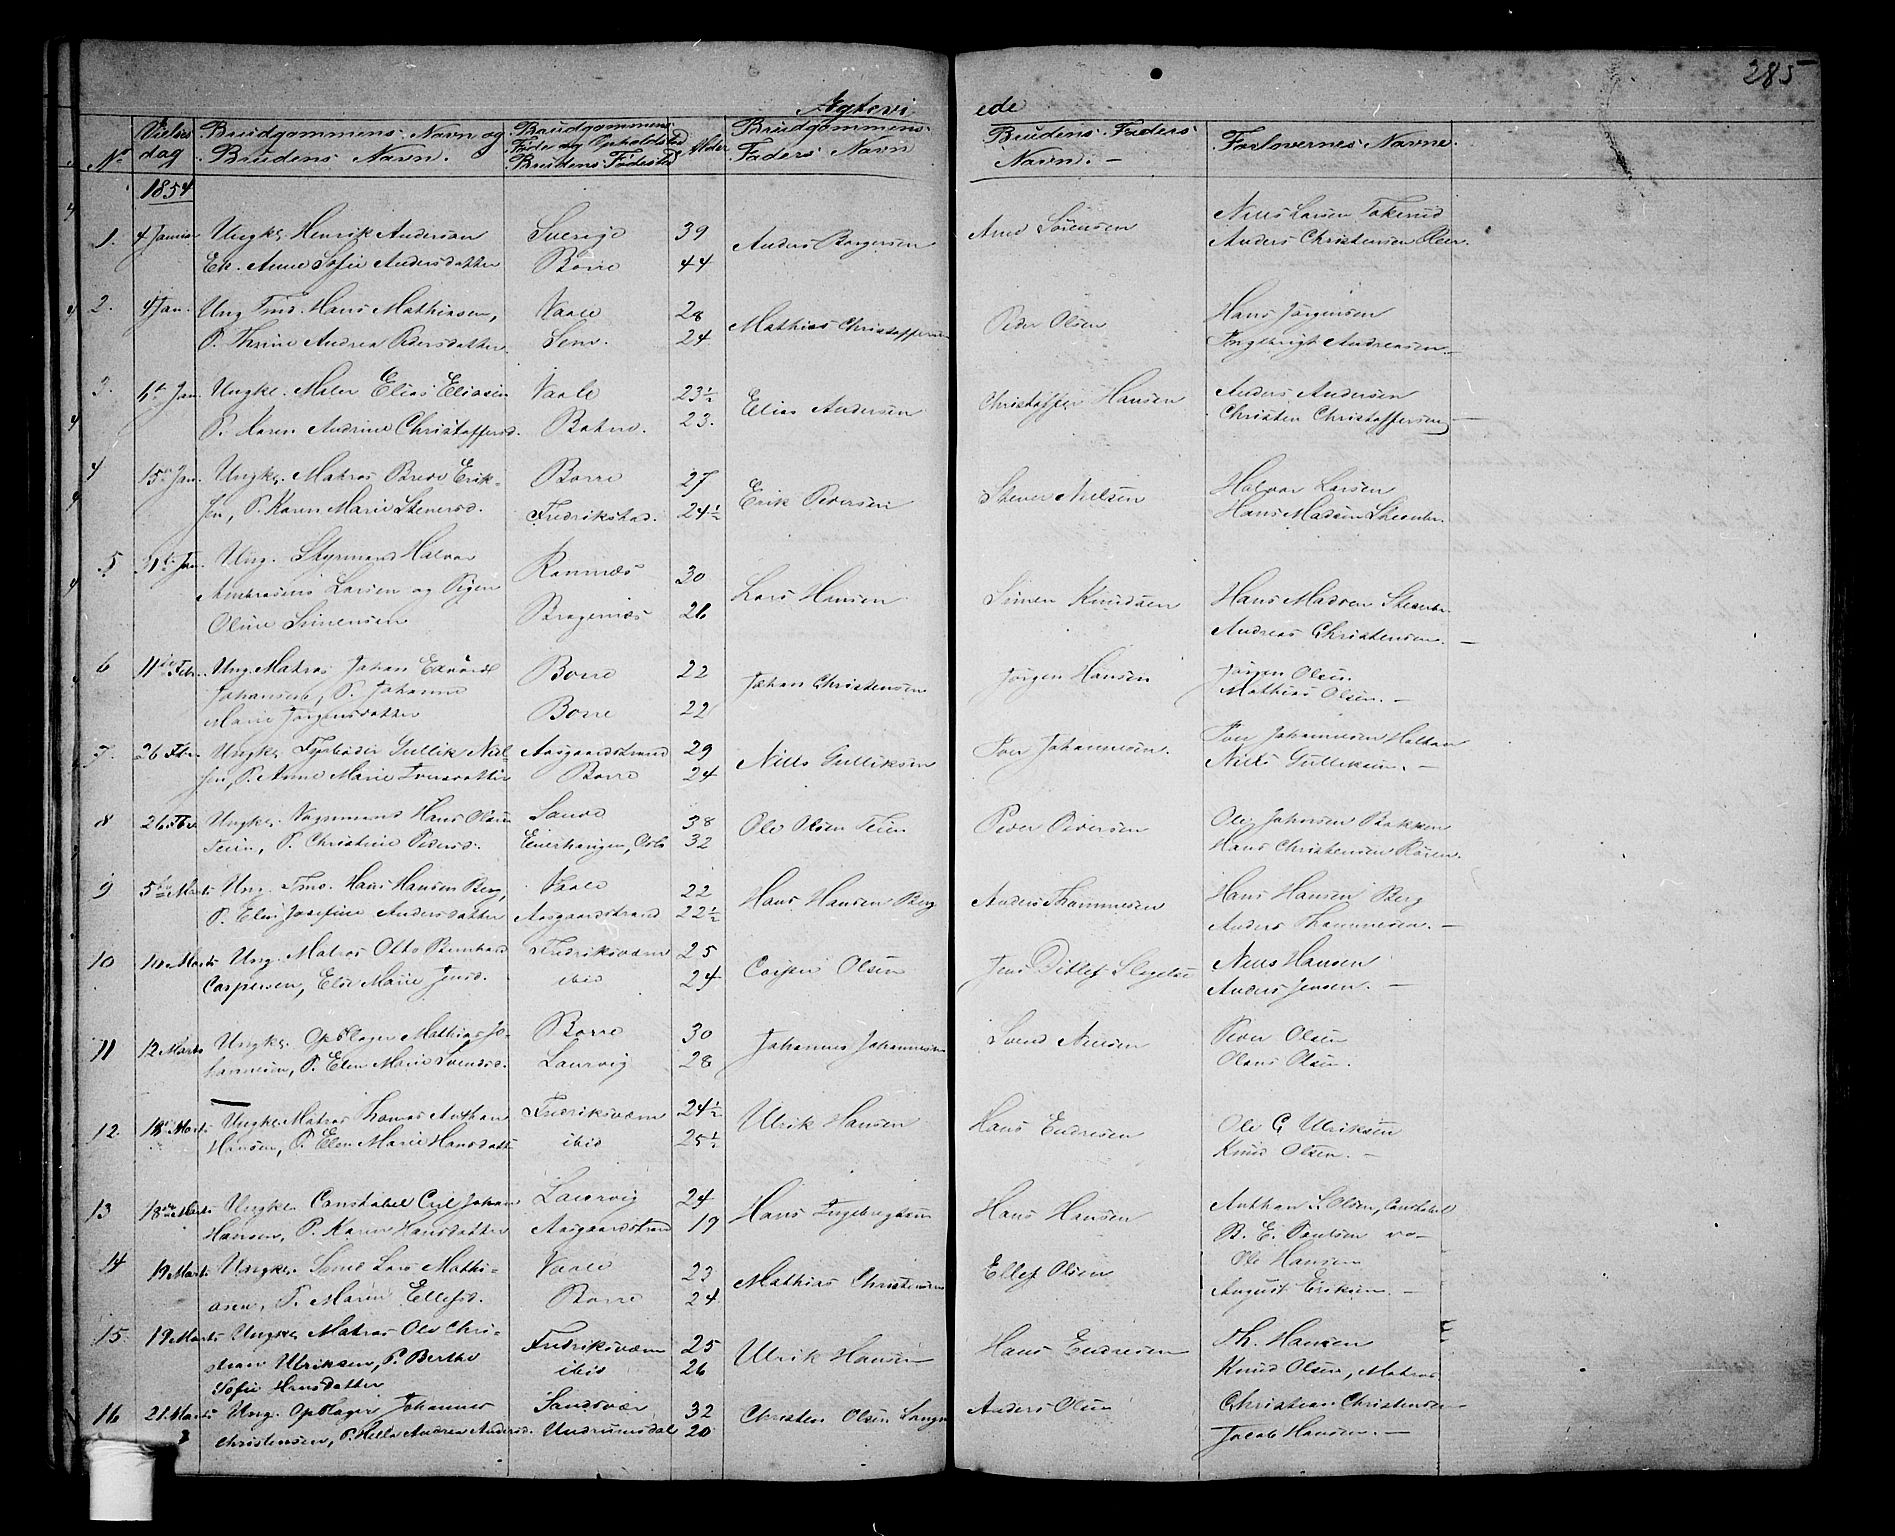 285
Ægtevi ede
No
Vielses dag
Brudgommens Navn og Brudens Navn.
Brudgommens Føde og Opholdsted Brudens Fødested
Alder
Brudgommens Faders Navn
Brudens Faders Navn. —
Forlovernes Navne.
1854
1. 4 Januar Ungk. Henrik Andersen Sverige 39 Anders Borgersen Arnd Sörensen Niels Larsen Takerud
Ek. Anne Sofie Andersdatter Borre 44 Anders Christensen
2. 4 Jan. Ung Tmd. Hans Mathiasen, Vaale 28 Mathias Christoffersen Peder Olsen Hans Jörgensen
P. Thrine Andrea Pedersdatter. Sem. 24 Ingebrigt Andreasen —
3. Jan. Ungk. Maler Elias Eliasen Vaale 23½ Elias Andersen Christoffer Hansen Anders Andersen
P. Karen Andrine Christoffersd. Botne. 23. Christen Christoffersen —
4 15de Jan. Ungk. Matros Brede Erik- Borre 27 Erik Pedersen Stener Nielsen Halvor Larsen
sen, P. Karen Marie Stenersd. Fredrikstad. 24½ Hans Madsen Steenbr.
5 Jan. Ung. Styrmand Halvor Ramnæs 30 Lars Hansen Simen Knudsen Hans Madsen Steenbr.
Ambrosius Larsen og Pigen Bragernæs 26 Andreas Christensen. —
Oline Simensen
6 11te Febr. Ung. Matros Johan Edvard Borre 22 Johan Christensen Jörgen Hansen Jörgen Olsen
Johansen, P. Johanne Borre 22 Mathias Olsen. —
Marie Jörgensdatter
7. 26 Febr. Ungk. Fyrböder Gullik Niel- Aasgaardstrand 29 Niels Gulliksen Iver Johannesen. Iver Johannesen Holtan
sen, P. Anne Marie Iversdatter Borre 24 Niels Gulliksen. —
8 26 Febr Ungk. Vognmand Hans Olsen Sande 38 Ole Olsen Teien Peder Pedersen Ole Johnsen Bakken
Teien, P. Christine Pedersd. Enerhaugen, Oslo 32 Hans Christensen Rören.
9 5te Marts Ung. Tmd. Hans Hansen Berg, Vaale 22 Hans Hansen Berg Anders Thommesen Hans Hansen Berg
P. Elen Josefine Andersdatter Aasgaardstrand 22½ Anders Thommesen. —
10 10 Marts Ung. Matros Otto Bernhard Fredriksværn 25 Casper Olsen Jens Ditlef Slagelse Niels Hansen
Caspersen, Else Marie Jensd. ibid 24 Anders Jensen. —
11 12 Marts Ungk. Opslager Mathias Jo- Borre 30 Johannes Johannesen Svend Nielsen Peder Olsen
hannesen, P. Elen Marie Svendsd. Laurvig 28 Olaus Olsen.
12. 18 Marts Ungk. Matros Thomas Anthon Fredriksværn 24½ Ulrik Hansen Hans Endresen Ole G Ulriksen
Hansen, P. Elen Marie Hansdatt. ibid 25½ Knud Olsen. —
13 18de Marts Ungk. Constabel Carl Johan Laurvig 24 Hans Ingebregtsen Hans Hansen Anthon S. Olsen, Constabel
Hansen, P. Karen Hansdatter Aasgaardstrand 19 B. E. Poulsen do —
14 19 Marts Ungk. Smed Lars Mathi- Vaale 23 Mathias Christensen Ellef Olsen Ole Hansen
asen, P. Maren Ellefsd. Borre 24 August Eriksen. —
15. 19 Marts Ungk. Matros Ole Chri- Fredriksværn 25 Ulrik Hansen Hans Endresen Th. Hansen
stian Ulriksen, P. Berthe ibid 26 Knud Olsen, Matros
Sofie Hansdatter
16 21. Marts Ung. Opslager Johannes Sandsvær 32 Christen Olsen Anders Olsen Christian Christensen —
Christensen, P. Helle Andrea Andersd. Undrumsdal 20 Jacob Hansen. —